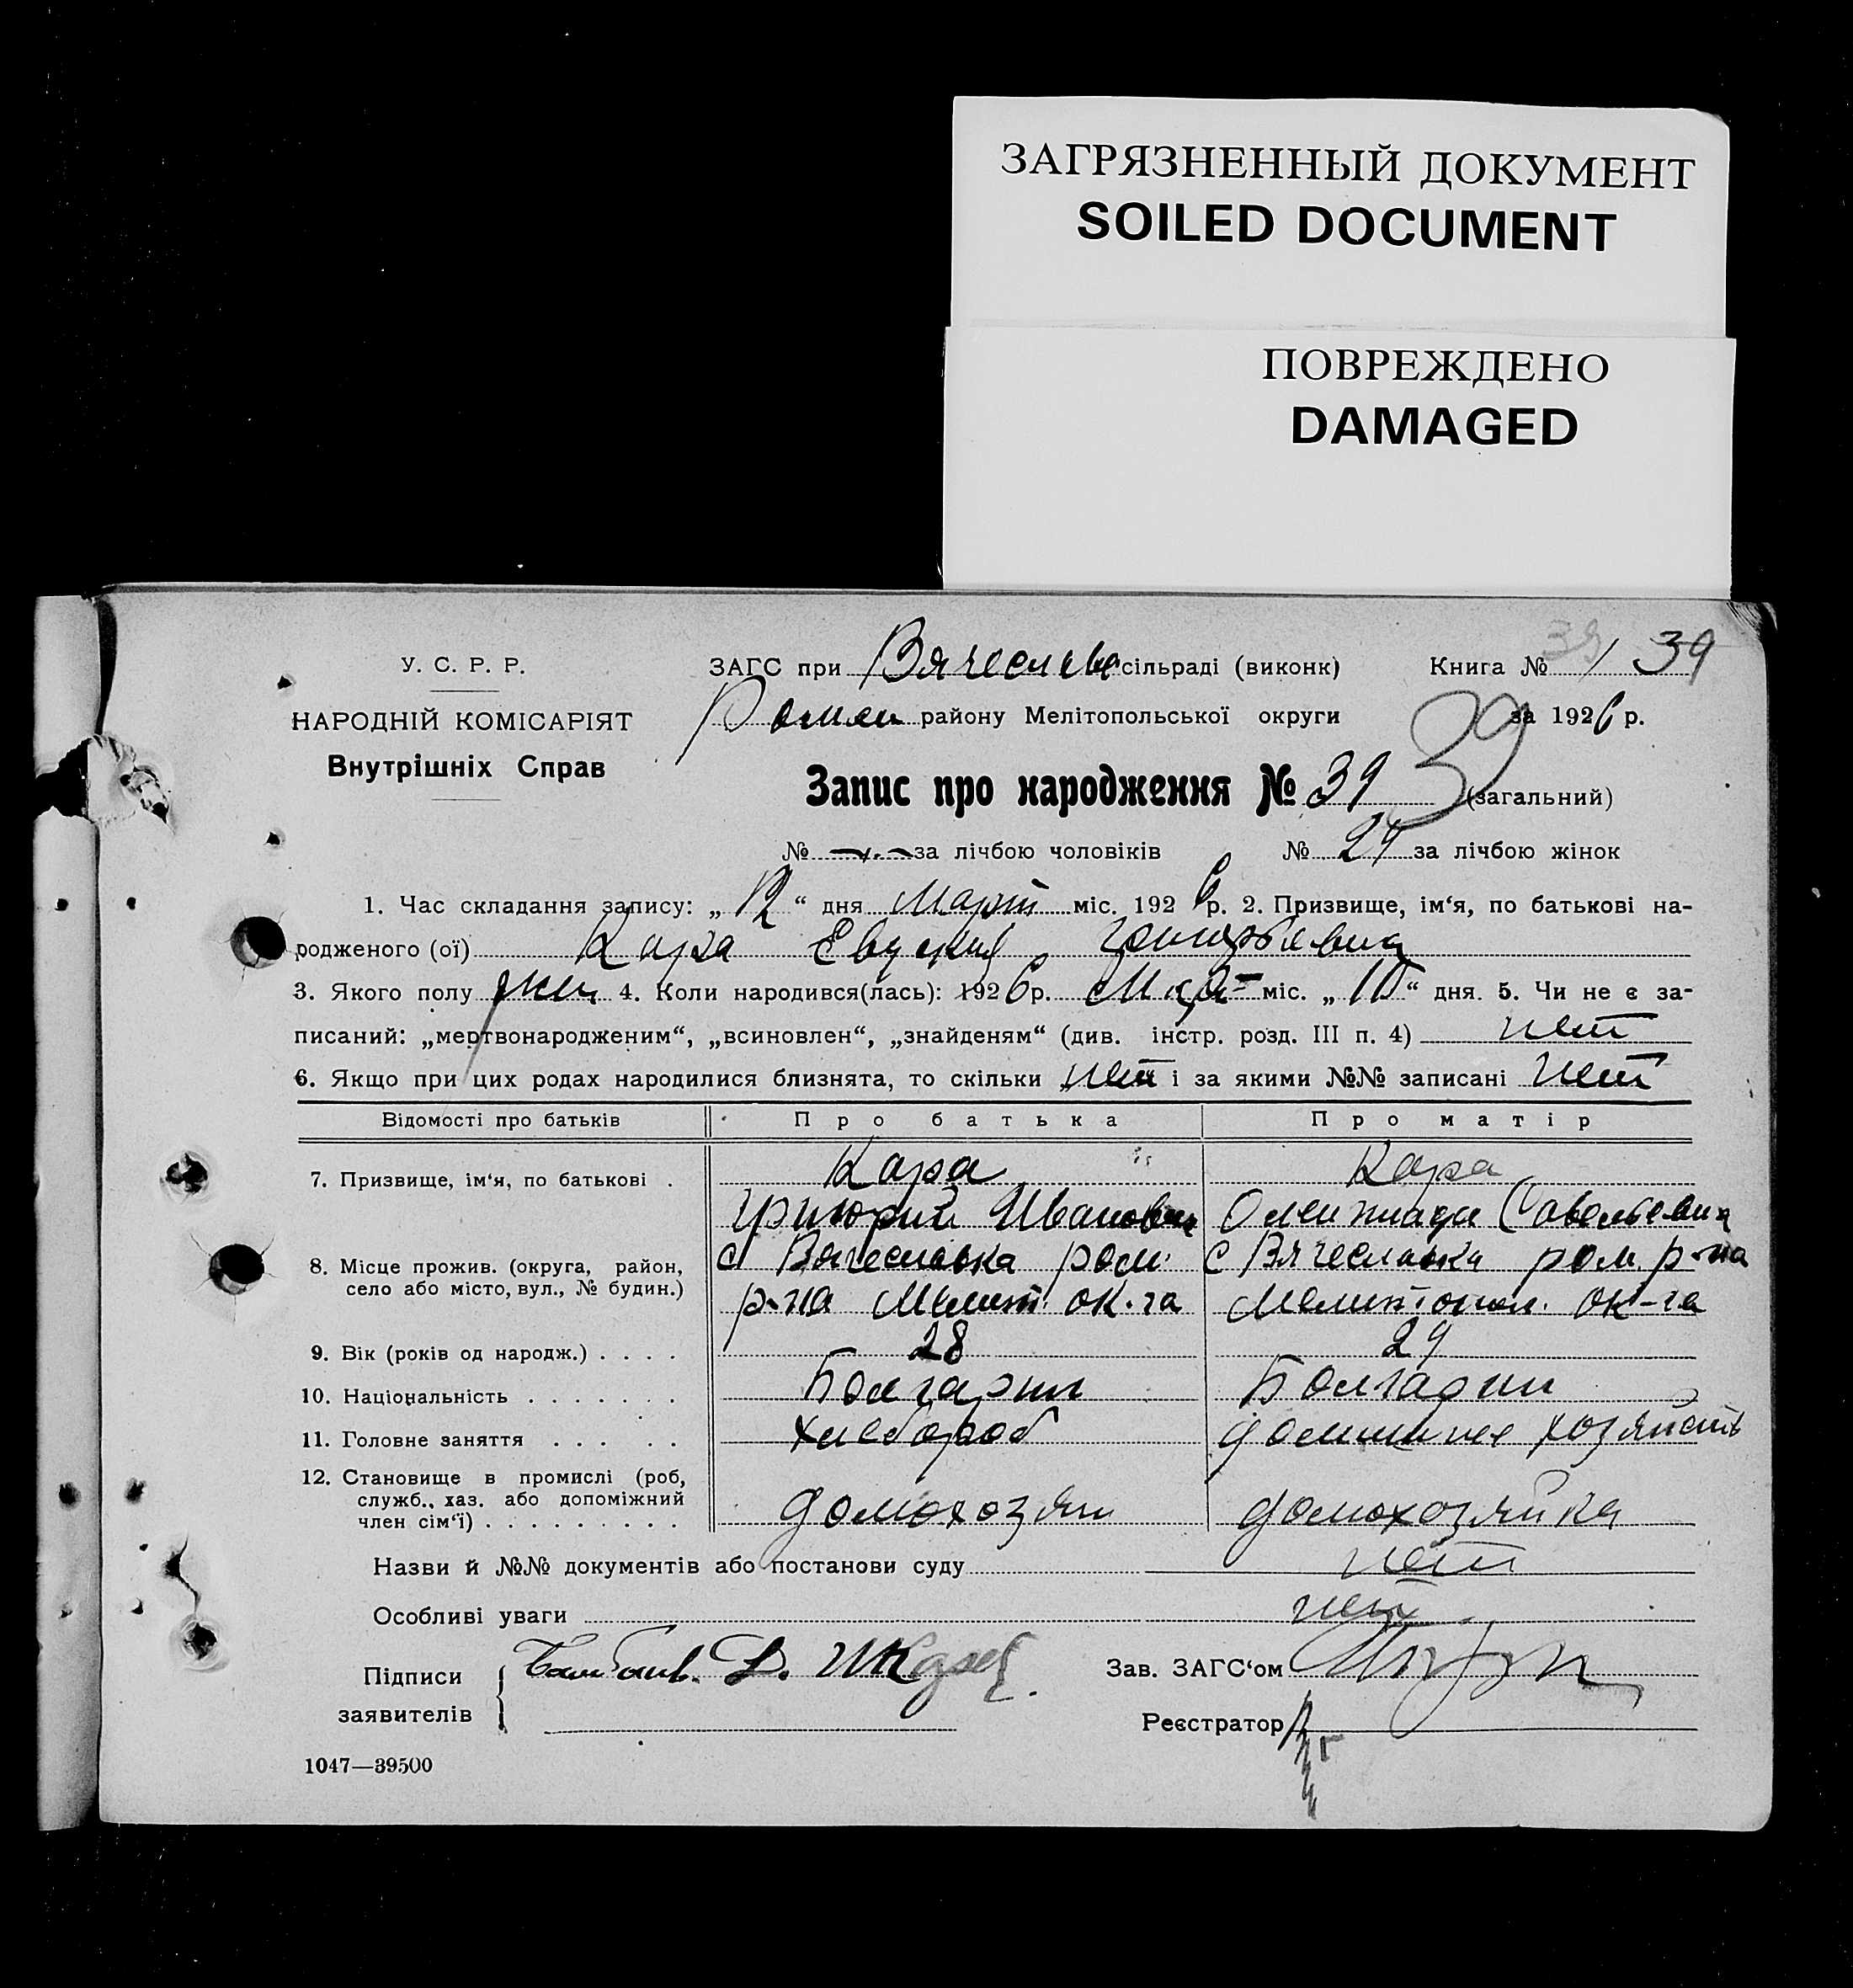 ЗАГРЯЗНЕННЫЙ ДОКУМЕНТ
SOILED DOCUMENT
ПОВРЕЖДЕНО
DAMAGED
У. С. Р. Р.
НАРОДНІЙ КОМІСАРІЯТ
Внутрішніх Справ
39
ЗАГС при Вячеслівс сільраді (виконк) Книга № 1 39
Ромен району Мелітопольської округи за 1926 р.
39
Запис про народження № 39 (загальний)
№ за лічбою чоловіків № 24 за лічбою жінок
1. Час складання запису: „12“ дня Март міс. 1926 р. 2. Призвище, ім‘я, по батькові на-
родженого (ої) Кара Григорьевна
3. Якого полу жен 4. Коли народився(лась): 1926 р. Мар- міс. „10“ дня. 5. Чи не є за-
писаний: „мертвонародженим“, „всиновлен“, „знайденям“ (див. інстр. розд. III п. 4) нет
6. Якщо при цих родах народилися близнята, то скільки нет і за якими №№ записані нет
Відомості про батьків Про батька Про матір
7. Призвище, ім‘я, по батькові . Кара Кара
Григорий Иванович Савельевна
8. Місце прожив. (округа, район, с Вячеславка ром. с Вячеславка ром. р-на
село або місто, вул., № будин.) р-на Мелит. ок-га Мелитопол. ок-га
9. Вік (років од народж.) . . . . 28 29
10. Національність . . . . . . . Болгарин Болгарин
11. Головне заняття . . . . . хлебороб домашнее хозяйств
12. Становище в промислі (роб,
служб., хаз. або допоміжний
член сім‘ї) . . . . . . . . . домохозяин домохозяйка
Назви й №№ документів або постанови суду нет
Особливі уваги нет
Підписи
заявителів
Зав. ЗАГС‘ом
Реєстратор
1047—39500